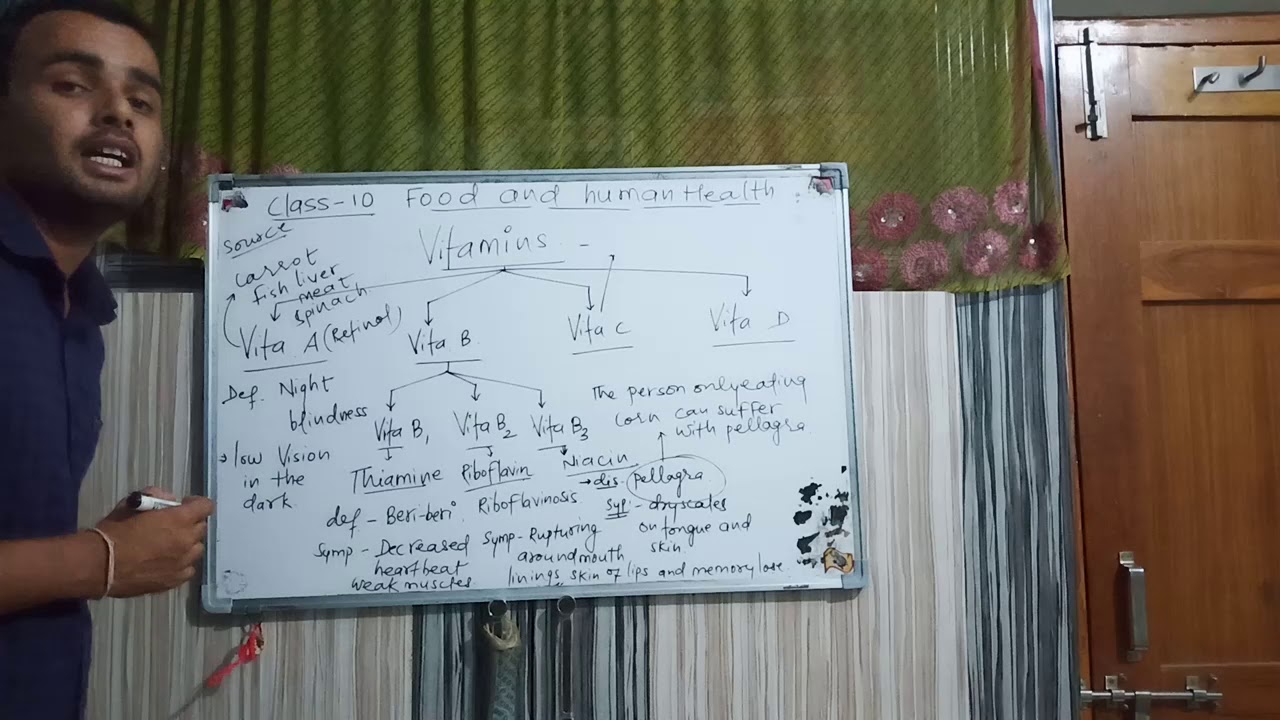 Class-10 Food and human Health :
Source
Vitamins -
carrot
fish liver
meat
spinach
Vita A (Retinol)
Vita B
Vita C
Vita D
Def. Night
blindness
→ low Vision
in the
dark
Vita B1
Vita B2
Vita B3
Thiamine
Riboflavin
Niacin
The person only eating
corn can suffer
with pellagra
→ dis. pellagra
def - Beri-beri
Riboflavinosis
Syp - dryscales
on tongue and
skin
Symp - Decreased
heartbeat
weak muscles
Symp - Rupturing
around mouth
linings, skin of lips and memory lose.